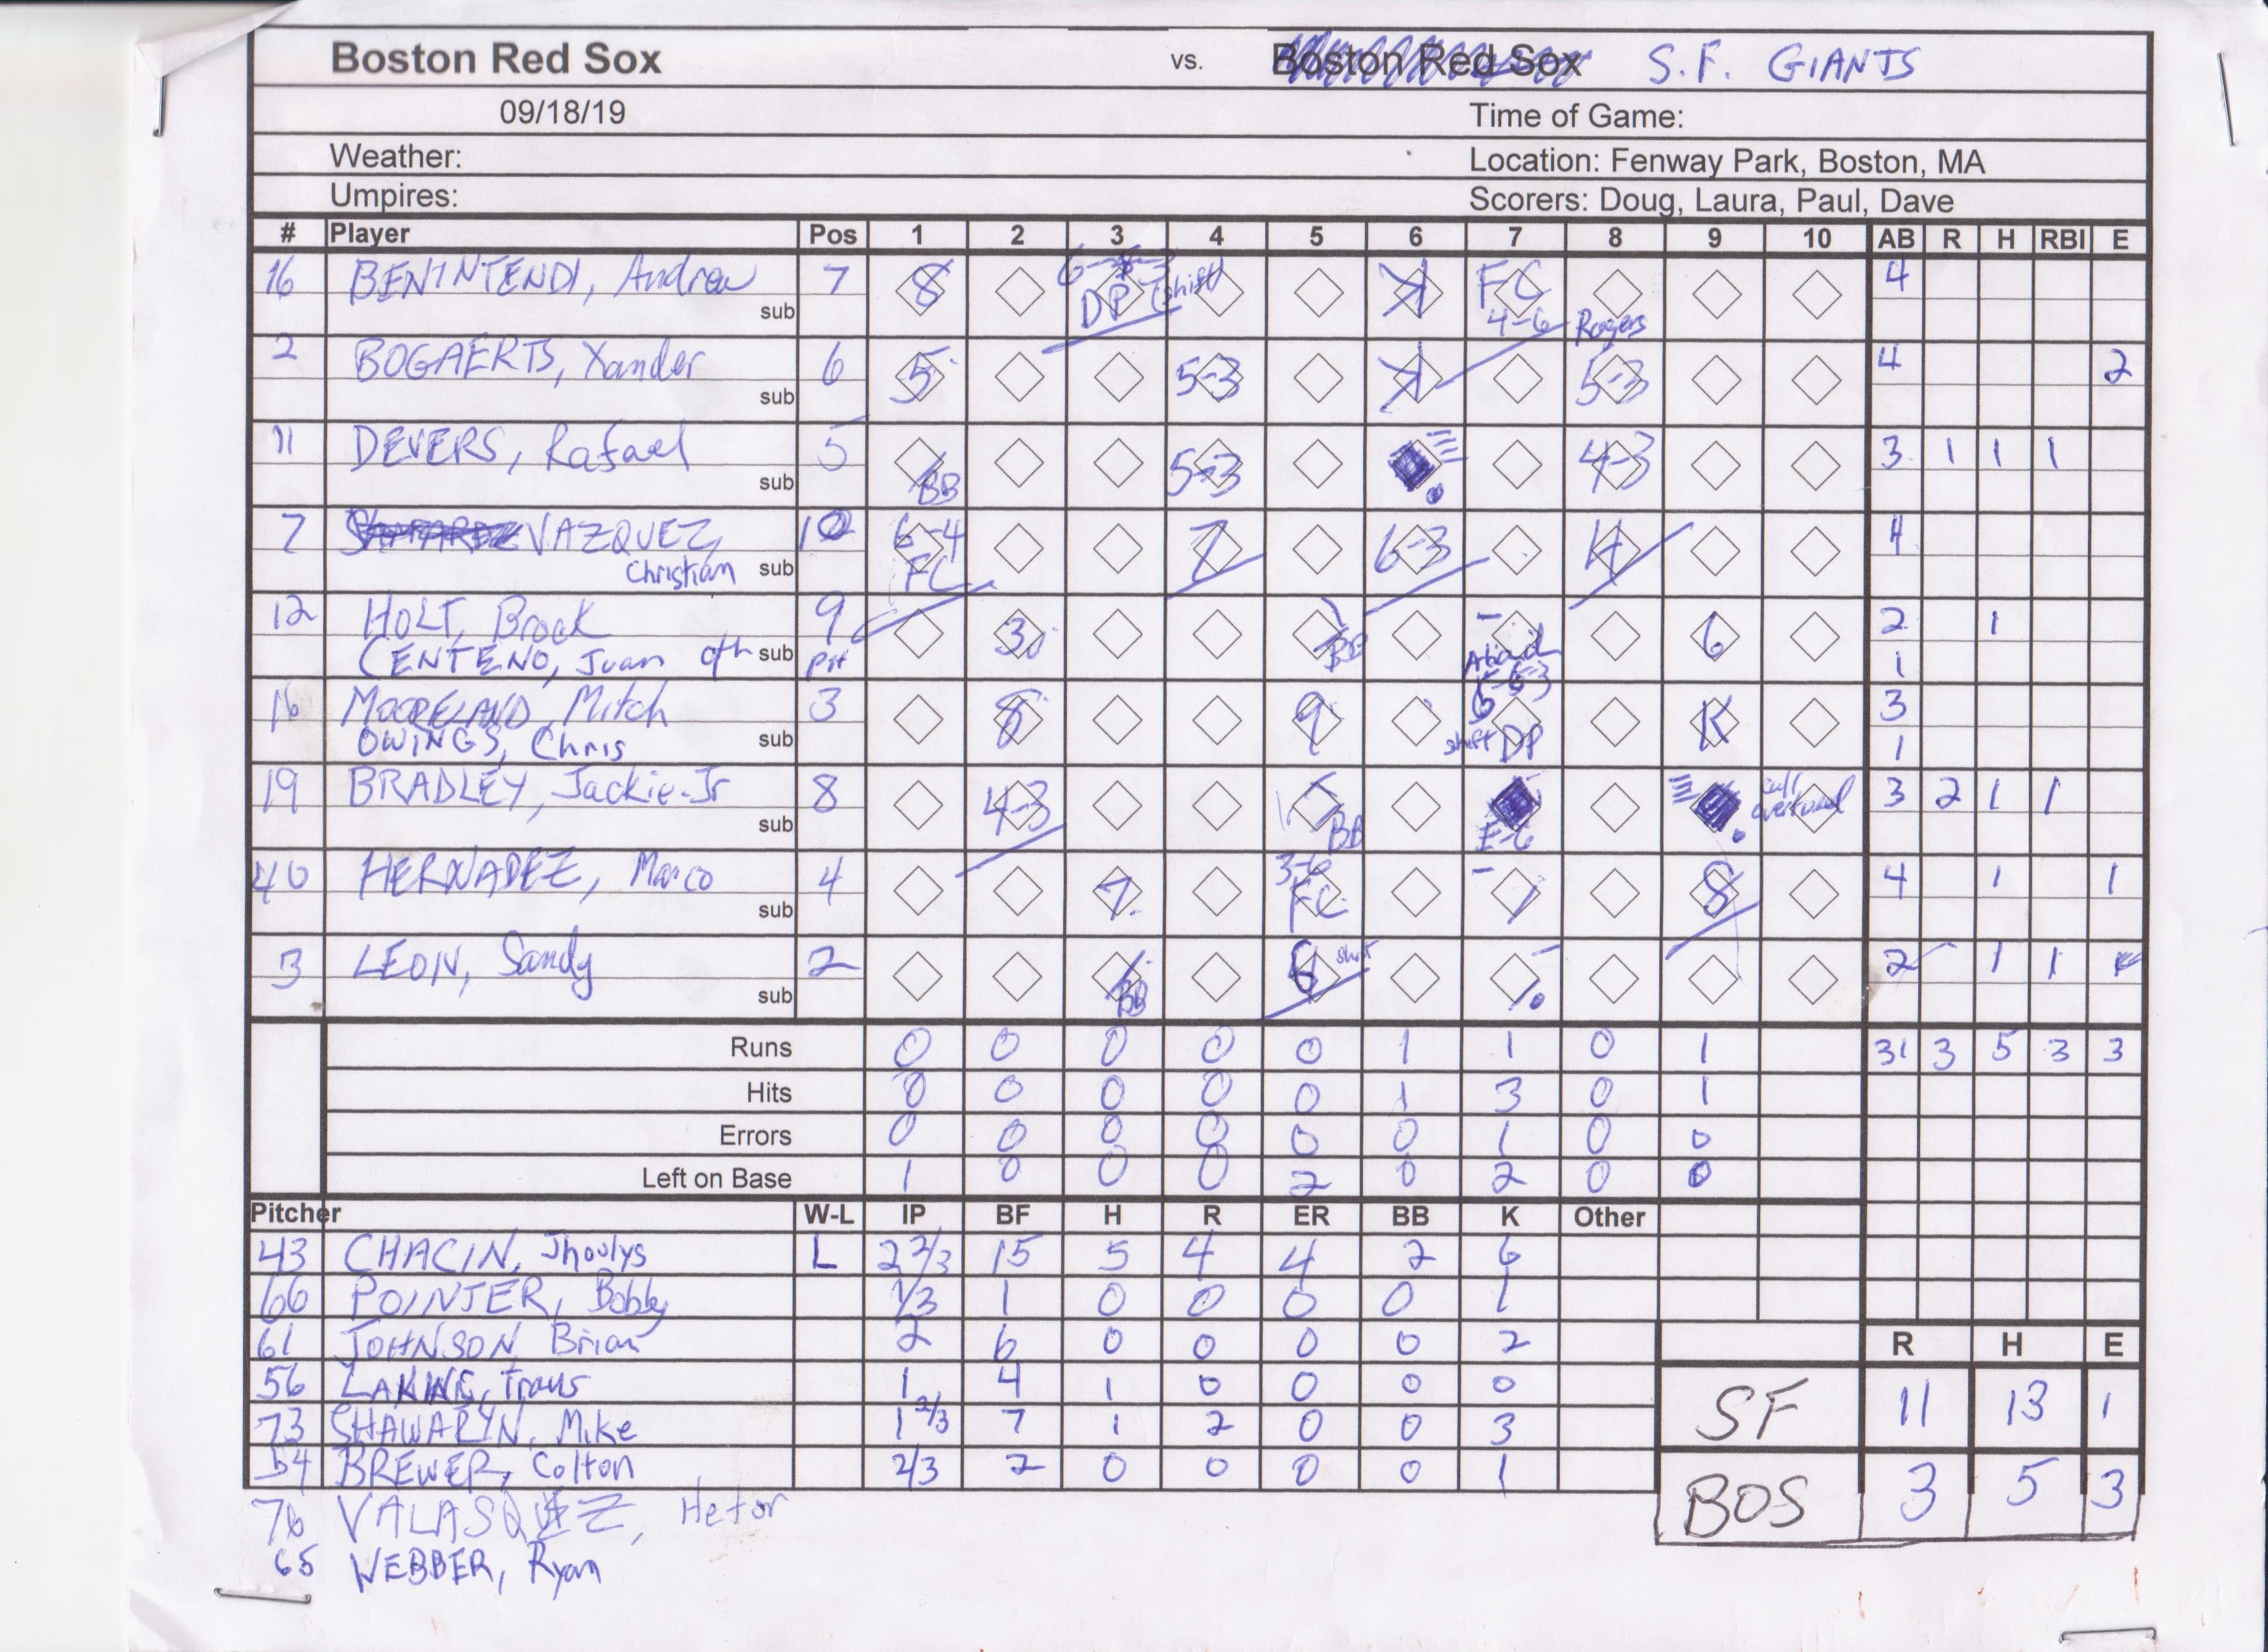 Boston Red Sox vs. Boston Red Sox S.F. GIANTS
09/18/19 Time of Game:
Weather: Location: Fenway Park, Boston, MA
Umpires: Scorers: Doug, Laura, Paul, Dave
# Player Pos 1 2 3 4 5 6 7 8 9 10 AB R H RBI E
16 BENINTENDI, Andrew 7 8 DP (shift) K FC 4-6 4
sub Rogers
2 BOGAERTS, Xander 6 5 5-3 K 5-3 4 2
sub
11 DEVERS, Rafael 5 BB 5-3 4-3 3 1 1 1
sub
7 VAZQUEZ, 10 6-4 FC 7 6-3 4 4
Christian sub
12 HOLT, Brock 9 3 BB - 6 2 1
CENTENO, Juan 9th sub PH 1
16 MOORELAND, Mitch 3 8 9 6-3 shift DP K 3
OWINGS, Chris sub 1
19 BRADLEY, Jackie-Jr 8 4-3 BB E-6 call overturned 3 2 1 1
sub
40 HERNADEZ, Marco 4 7 3-6 FC - 8 4 1 1
sub
3 LEON, Sandy 2 BB 6 shift - 2 1 1
sub
Runs 0 0 0 0 0 1 1 0 1 31 3 5 3 3
Hits 0 0 0 0 0 1 3 0 1
Errors 0 0 0 0 0 0 1 0 0
Left on Base 1 0 0 0 2 0 2 0 0
Pitcher W-L IP BF H R ER BB K Other
43 CHACIN, Jhoulys L 2 2/3 15 5 4 4 2 6
66 POINTER, Bobby 1/3 1 0 0 0 0 1
61 JOHNSON, Brian 2 6 0 0 0 0 2
56 LAKINS, Travis 1 4 1 0 0 0 0
73 SHAWARYN, Mike 1 2/3 7 1 2 0 0 3
54 BREWER, Colton 2/3 2 0 0 0 0 1
76 VALASQUEZ, Hetor
65 WEBBER, Ryan
R H E
SF 11 13 1
BOS 3 5 3